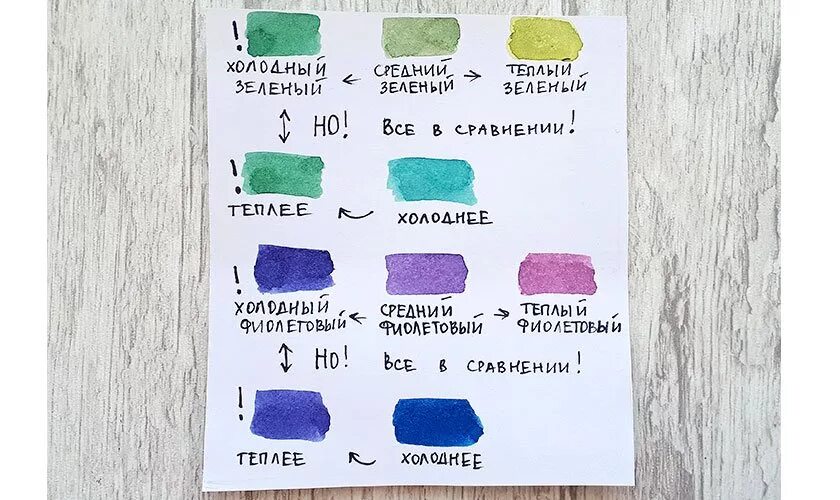 ! 
ХОЛОДНЫЙ ← СРЕДНИЙ → ТЕПЛЫЙ
ЗЕЛЕНЫЙ ЗЕЛЕНЫЙ ЗЕЛЕНЫЙ
↕ НО! ВСЕ В СРАВНЕНИИ!
!
ТЕПЛЕЕ ← ХОЛОДНЕЕ
!
ХОЛОДНЫЙ ← СРЕДНИЙ → ТЕПЛЫЙ
ФИОЛЕТОВЫЙ ФИОЛЕТОВЫЙ ФИОЛЕТОВЫЙ
↕ НО! ВСЕ В СРАВНЕНИИ!
!
ТЕПЛЕЕ ← ХОЛОДНЕЕ